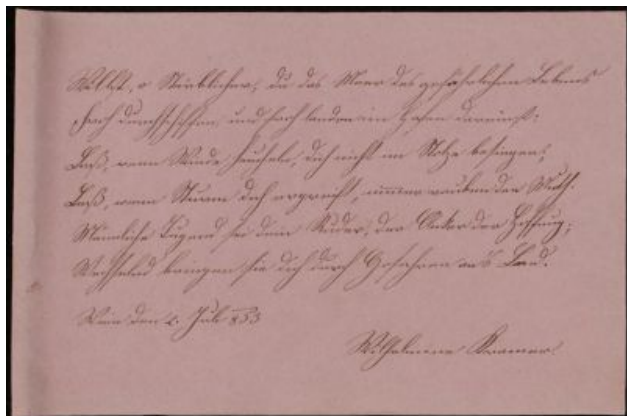 Willst, o Sterblicher, du das Meer des gefährlichen Lebens
Froh durchschiffen, und froh landen im Hafen dereinst:
Laß, wenn Winde heucheln, dich nicht vom Stolze besiegen;
Laß, wenn Sturm dich ergreift, nimmer rauben den Muth.
Männliche Tugend sei dein Ruder, der Anker der Hoffnung;
Wechselnd bringen sie dich durch Gefahren an's Land.
Wien den Juli 853
Wilhelmine Kramer.